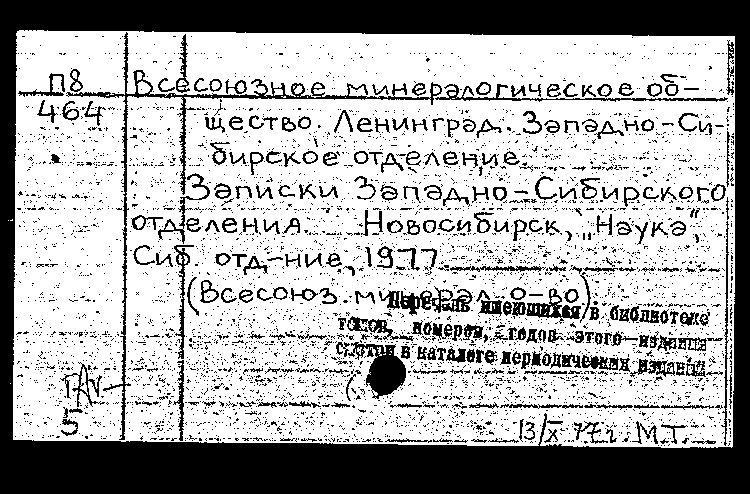 П8 Всесоюзное минералогическое об-
464 щество. Ленинград. Западно-Си-
бирское отделение.
Записки Западно-Сибирского
отделения. Новосибирск, "Наука",
Сиб. отд-ние, 1977
(Всесоюз. минерал. о-во)
Перечень имеющихся в библиотеке
томов, номеров, годов этого издания
смотри в каталоге периодических изданий
5 13/X 77г. М.Т.